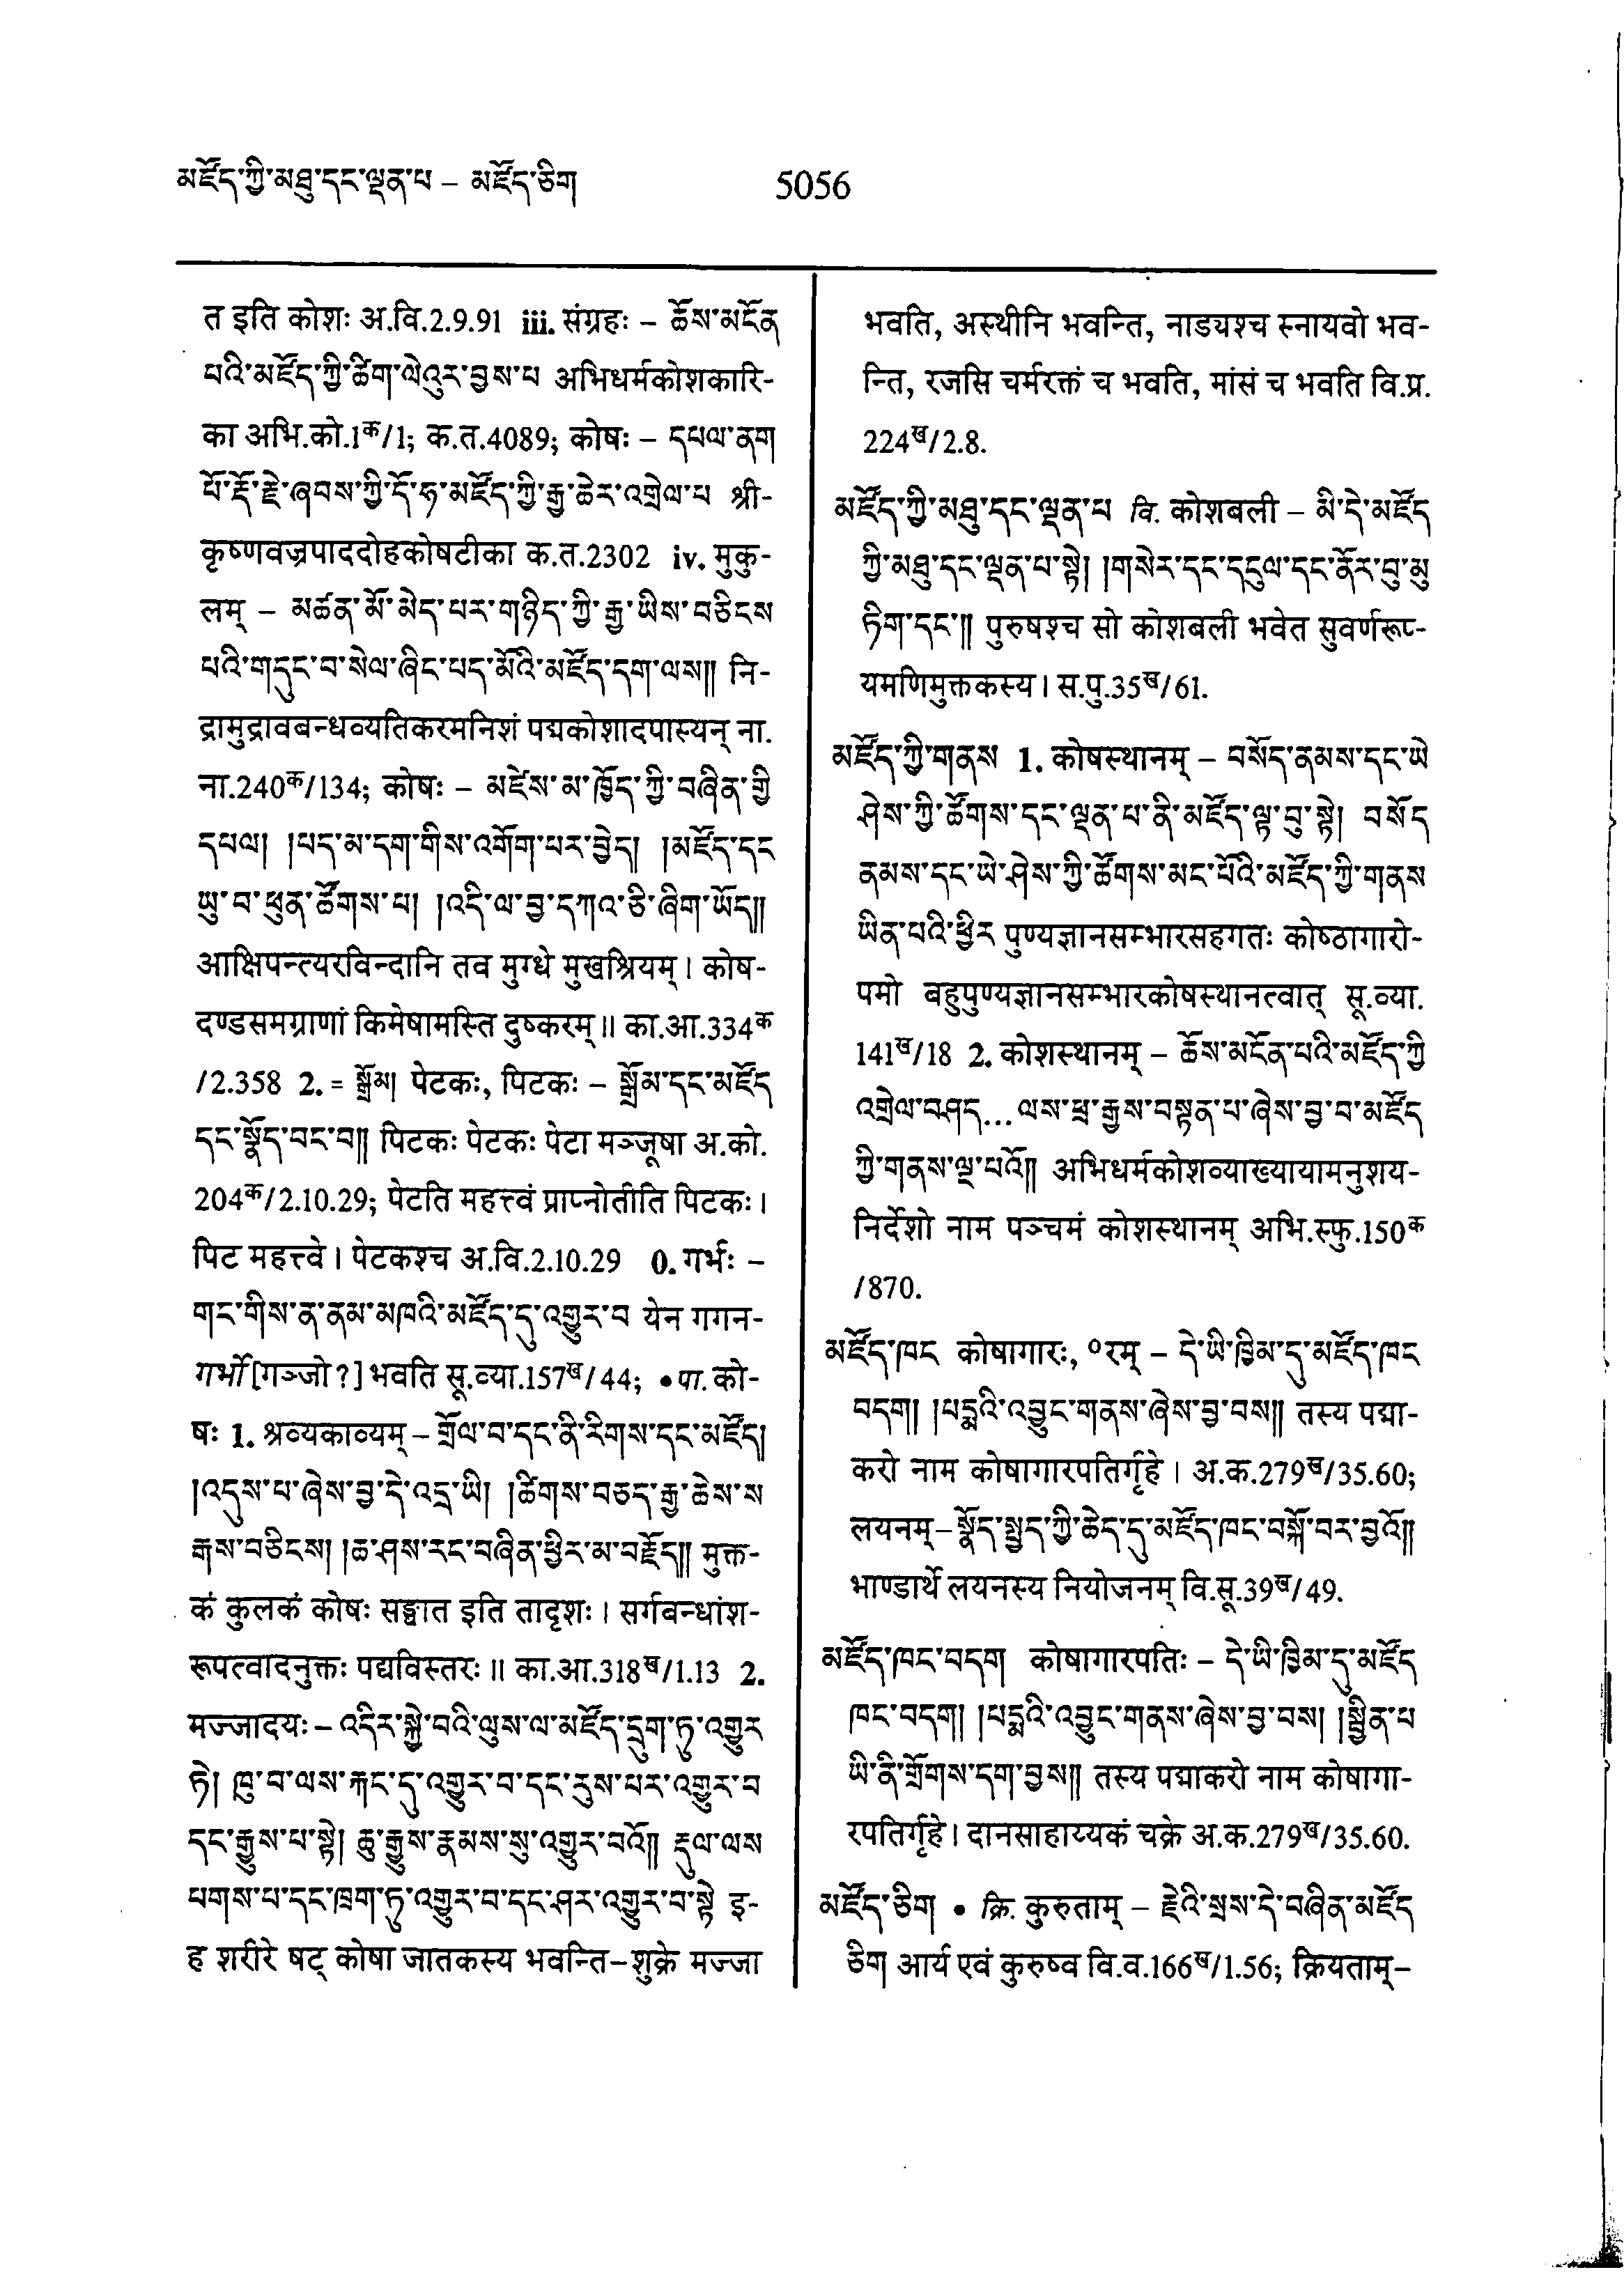 མཛོད་ཀྱི་མཐུ་དང་ལྡན་པ – མཛོད་ཅིག
5056
त इति कोशः अ.वि.2.9.91 iii. संग्रहः – ཆོས་མངོན
པའི་མཛོད་ཀྱི་ཚིག་ལེའུར་བྱས་པ अभिधर्मकोशकारि-
का अभि.को.1क/1; क.त.4089; कोषः – དཔལ་ནག
པོ་རྡོ་རྗེ་ཞབས་ཀྱི་དོ་ཧ་མཛོད་ཀྱི་རྒྱ་ཆེར་འགྲེལ་པ श्री-
कृष्णवज्रपाददोहकोषटीका क.त.2302 iv. मुकु-
लम् – མཚན་མོ་མེད་པར་གཉིད་ཀྱི་རྒྱ་ཡིས་བཅིངས
པའི་གདུང་བ་སེལ་ཞིང་པད་མོའི་མཛོད་དག་ལས།། नि-
द्रामुद्रावबन्धव्यतिकरमनिशं पद्मकोशादपास्यन् ना.
ना.240क/134; कोषः – མཛེས་མ་ཁྱོད་ཀྱི་བཞིན་གྱི
དཔལ། །པད་མ་དག་གིས་འགོག་པར་བྱེད། །མཛོད་དང
ཡུ་བ་ཕུན་ཚོགས་པ། །འདི་ལ་བྱ་དཀའ་ཅི་ཞིག་ཡོད།།
आक्षिपन्त्यरविन्दानि तव मुग्धे मुखश्रियम्। कोष-
दण्डसमग्राणां किमेषामस्ति दुष्करम्॥ का.आ.334क
/2.358 2. = སྒྲོམ། पेटकः, पिटकः – སྒྲོམ་དང་མཛོད
དང་སྣོད་བང་བ།། पिटकः पेटकः पेटा मञ्जूषा अ.को.
204क/2.10.29; पेटति महत्त्वं प्राप्नोतीति पिटकः।
पिट महत्त्वे। पेटकश्च अ.वि.2.10.29 0. गर्भः –
གང་གིས་ན་ནམ་མཁའི་མཛོད་དུ་འགྱུར་བ येन गगन-
गर्भो [गञ्जो ?] भवति सू.व्या.157ख/44; • पा. को-
षः 1. श्रव्यकाव्यम् – གྲོལ་བ་དང་ནི་རིགས་དང་མཛོད།
།འདུས་པ་ཞེས་བྱ་དེ་འདྲ་ཡི། །ཚིགས་བཅད་རྒྱ་ཆེས་ས
རྒས་བཅིངས། །ཆ་ཤས་རང་བཞིན་ཕྱིར་མ་བརྗོད།། मुक्त-
कं कुलकं कोषः सङ्घात इति तादृशः। सर्गबन्धांश-
रूपत्वादनुक्तः पद्यविस्तरः॥ का.आ.318ख/1.13 2.
मज्जादयः – འདིར་སྐྱེ་བའི་ལུས་ལ་མཛོད་དྲུག་ཏུ་འགྱུར
ཏེ། ཁུ་བ་ལས་རྐང་དུ་འགྱུར་བ་དང་རུས་པར་འགྱུར་བ
དང་རྒྱུས་པ་སྟེ། ཆུ་རྒྱུས་རྣམས་སུ་འགྱུར་བའོ།། རྡུལ་ལས
པགས་པ་དང་ཁྲག་ཏུ་འགྱུར་བ་དང་ཤར་འགྱུར་བ་སྟེ इ-
ह शरीरे षट् कोषा जातकस्य भवन्ति–शुक्रे मज्जा
भवति, अस्थीनि भवन्ति, नाड्यश्च स्नायवो भव-
न्ति, रजसि चर्मरक्तं च भवति, मांसं च भवति वि.प्र.
224ख/2.8.
མཛོད་ཀྱི་མཐུ་དང་ལྡན་པ वि. कोशबली – མི་དེ་མཛོད
ཀྱི་མཐུ་དང་ལྡན་པ་སྟེ། །གསེར་དང་དངུལ་དང་ནོར་བུ་མུ
ཏིག་དང་།། पुरुषश्च सो कोशबली भवेत सुवर्णरूप्-
यमणिमुक्तकस्य। स.पु.35ख/61.
མཛོད་ཀྱི་གནས 1. कोषस्थानम् – བསོད་ནམས་དང་ཡེ
ཤེས་ཀྱི་ཚོགས་དང་ལྡན་པ་ནི་མཛོད་ལྟ་བུ་སྟེ། བསོད
ནམས་དང་ཡེ་ཤེས་ཀྱི་ཚོགས་མང་པོའི་མཛོད་ཀྱི་གནས
ཡིན་པའི་ཕྱིར पुण्यज्ञानसम्भारसहगतः कोष्ठागारो-
पमो बहुपुण्यज्ञानसम्भारकोषस्थानत्वात् सू.व्या.
141ख/18 2. कोशस्थानम् – ཆོས་མངོན་པའི་མཛོད་ཀྱི
འགྲེལ་བཤད...ལས་ཕྲ་རྒྱས་བསྟན་པ་ཞེས་བྱ་བ་མཛོད
ཀྱི་གནས་ལྔ་པའོ།། अभिधर्मकोशव्याख्यायामनुशय-
निर्देशो नाम पञ्चमं कोशस्थानम् अभि.स्फु.150क
/870.
མཛོད་ཁང कोषागारः, ०रम् – དེ་ཡི་ཁྱིམ་དུ་མཛོད་ཁང
བདག། །པདྨའི་འབྱུང་གནས་ཞེས་བྱ་བས།། तस्य पद्मा-
करो नाम कोषागारपतिर्गृहे। अ.क.279ख/35.60;
लयनम् – སྣོད་སྤྱད་ཀྱི་ཆེད་དུ་མཛོད་ཁང་བསྐོ་བར་བྱའོ།།
भाण्डार्थे लयनस्य नियोजनम् वि.सू.39ख/49.
མཛོད་ཁང་བདག कोषागारपतिः – དེ་ཡི་ཁྱིམ་དུ་མཛོད
ཁང་བདག། །པདྨའི་འབྱུང་གནས་ཞེས་བྱ་བས། །སྦྱིན་པ
ཡི་ནི་གྲོགས་དག་བྱས།། तस्य पद्माकरो नाम कोषागा-
रपतिर्गृहे। दानसाहाय्यकं चक्रे अ.क.279ख/35.60.
མཛོད་ཅིག • क्रि. कुरुताम् – རྗེའི་སྲས་དེ་བཞིན་མཛོད
ཅིག आर्य एवं कुरुष्व वि.व.166ख/1.56; क्रियताम्–